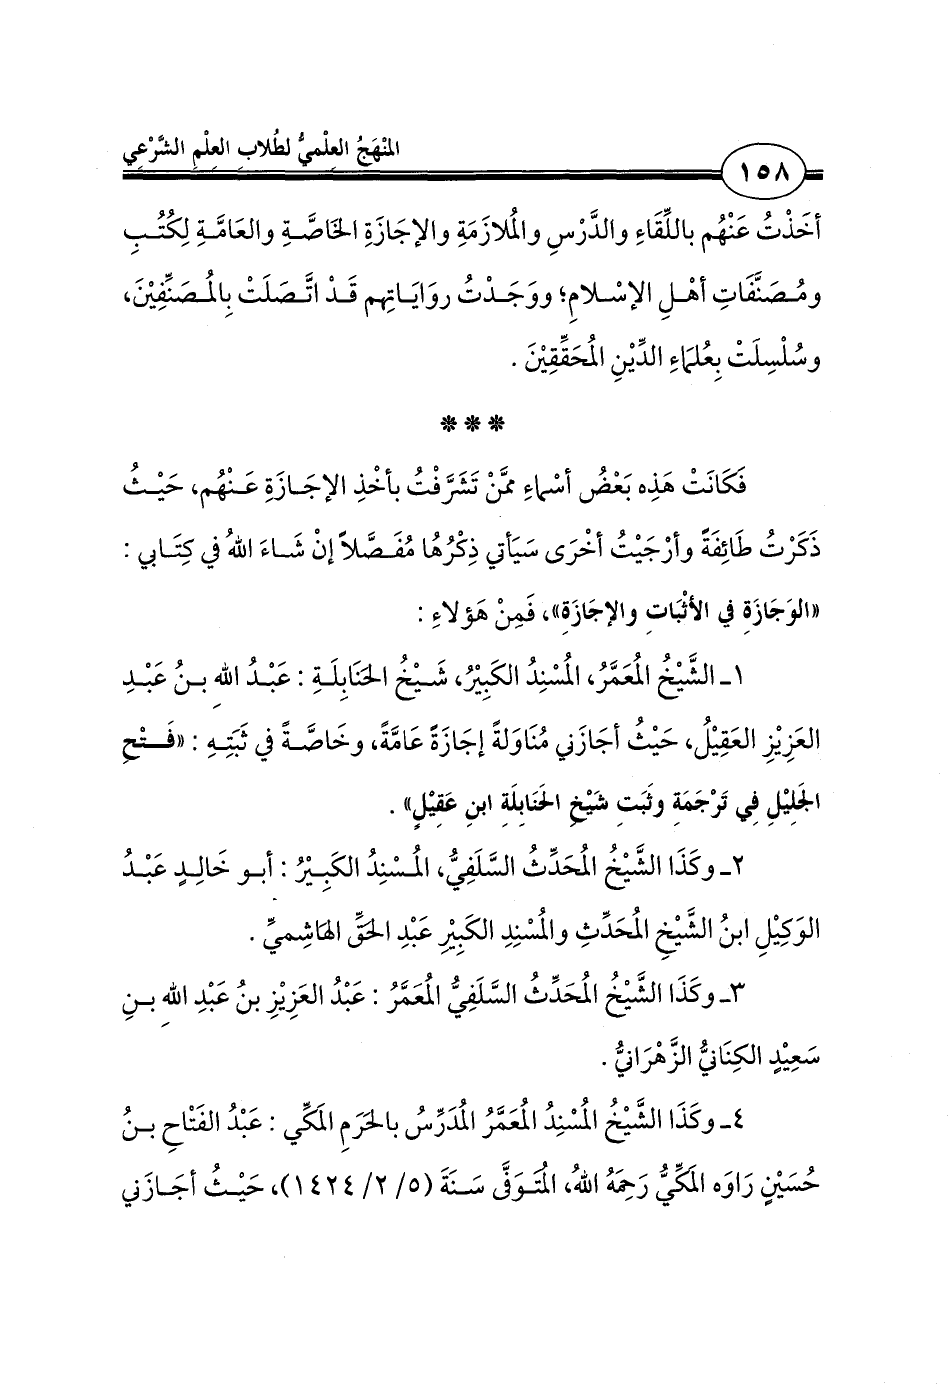 المَنْهَجُ العِلْمِيُّ لطُلابِ العِلْمِ الشَّرْعِي
١٥٨
أخَذْتُ عَنْهُم باللِّقَاءِ والدَّرْسِ والمُلازَمَةِ والإجَازَةِ الخَاصَّةِ والعَامَّةِ لِكُتُبِ
ومُصَنَّفَاتِ أهْلِ الإسْلامِ؛ ووَجَدْتُ روَايَاتِهِم قَدْ اتَّصَلَتْ بِالمُصَنِّفِيْنَ،
وسُلْسِلَتْ بِعُلَمَاءِ الدِّيْنِ المُحَقِّقِيْنَ .
***
فَكَانَتْ هَذِه بَعْضُ أسْمَاءِ ممَّنْ تَشَرَّفْتُ بأخْذِ الإجَازَةِ عَنْهُم، حَيْثُ
ذَكَرْتُ طَائِفَةً وأرْجَيْتُ أخْرَى سَيَأتي ذِكْرُها مُفَصَّلاً إنْ شَاءَ اللهُ في كِتَابي :
«الوَجَازَةِ في الأثْبَاتِ والإجَازَةِ»، فَمِنْ هَؤلاءِ :
١ـ الشَّيْخُ المُعَمَّرُ، المُسْنِدُ الكَبِيْرُ، شَيْخُ الحَنَابِلَةِ : عَبْدُ اللهِ بنُ عَبْدِ
العَزِيْزِ العَقِيْلُ، حَيْثُ أجَازَني مُنَاوَلَةً إجَازَةً عَامَّةً، وخَاصَّةً في ثَبَتِهِ : «فَتْحِ
الجَلِيْلِ فِي تَرْجَمَةِ وثَبَتِ شَيْخِ الحَنَابِلَةِ ابنِ عَقِيْلٍ» .
٢ـ وكَذَا الشَّيْخُ المُحَدِّثُ السَّلَفِيُّ، المُسْنِدُ الكَبِيْرُ : أبو خَالِدٍ عَبْدُ
الوَكِيْلِ ابنُ الشَّيْخِ المُحَدِّثِ والمُسْنِدِ الكَبِيْرِ عَبْدِ الحَقِّ الهَاشِميِّ .
٣ـ وكَذَا الشَّيْخُ المُحَدِّثُ السَّلَفِيُّ المُعَمَّرُ : عَبْدُ العَزِيْزِ بنُ عَبْدِ اللهِ بنِ
سَعِيْدٍ الكِنَانيُّ الزَّهْرَانيُّ .
٤ـ وكَذَا الشَّيْخُ المُسْنِدُ المُعَمَّرُ المُدَرِّسُ بالحَرَمِ المَكِّي : عَبْدُ الفَتَّاحِ بنُ
حُسَيْنٍ رَاوَه المَكِّيُّ رَحِمَهُ اللهُ، المُتَوفَّى سَنَةَ (٥/ ٢/ ١٤٢٤)، حَيْثُ أجَازَني